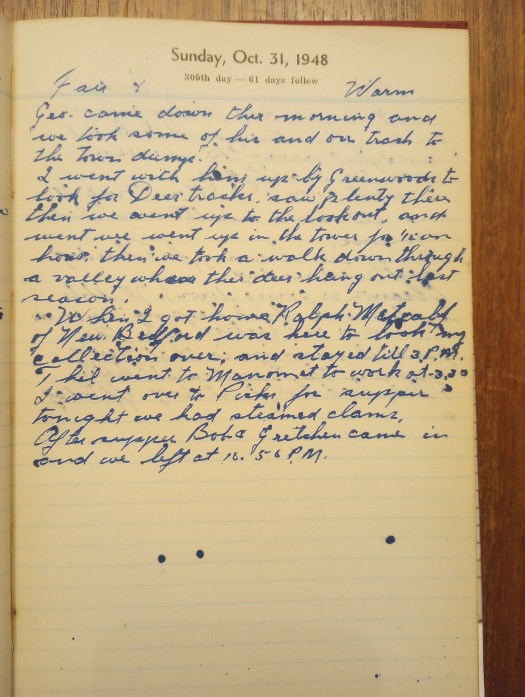 Sunday, Oct. 31, 1948
305th day — 61 days follow
Fair & Warm
Geo. came down this morning and
we took some of his and our trash to
the town dump.
I went with him up by Greenwoods to
look for Deer tracks, saw plenty there
then we went up to the lookout, and
went we went up in the tower for
hour, then we took a walk down through
a valley where the deer hang out last
season.
When I got home Ralph Metcalf
of New Bedford was here to look my
collection over, and stayed till 3 P.M.
Thel went to Manomet to work at 3.30
I went over to for supper
tonight we had steamed clams.
After supper Bob & Gretchen came in
and we left at 10.50 P.M.